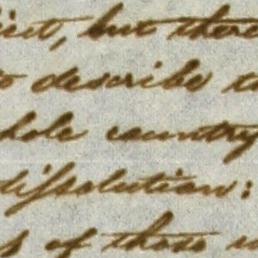 but there
to describe
whole country
dissolution:
of those